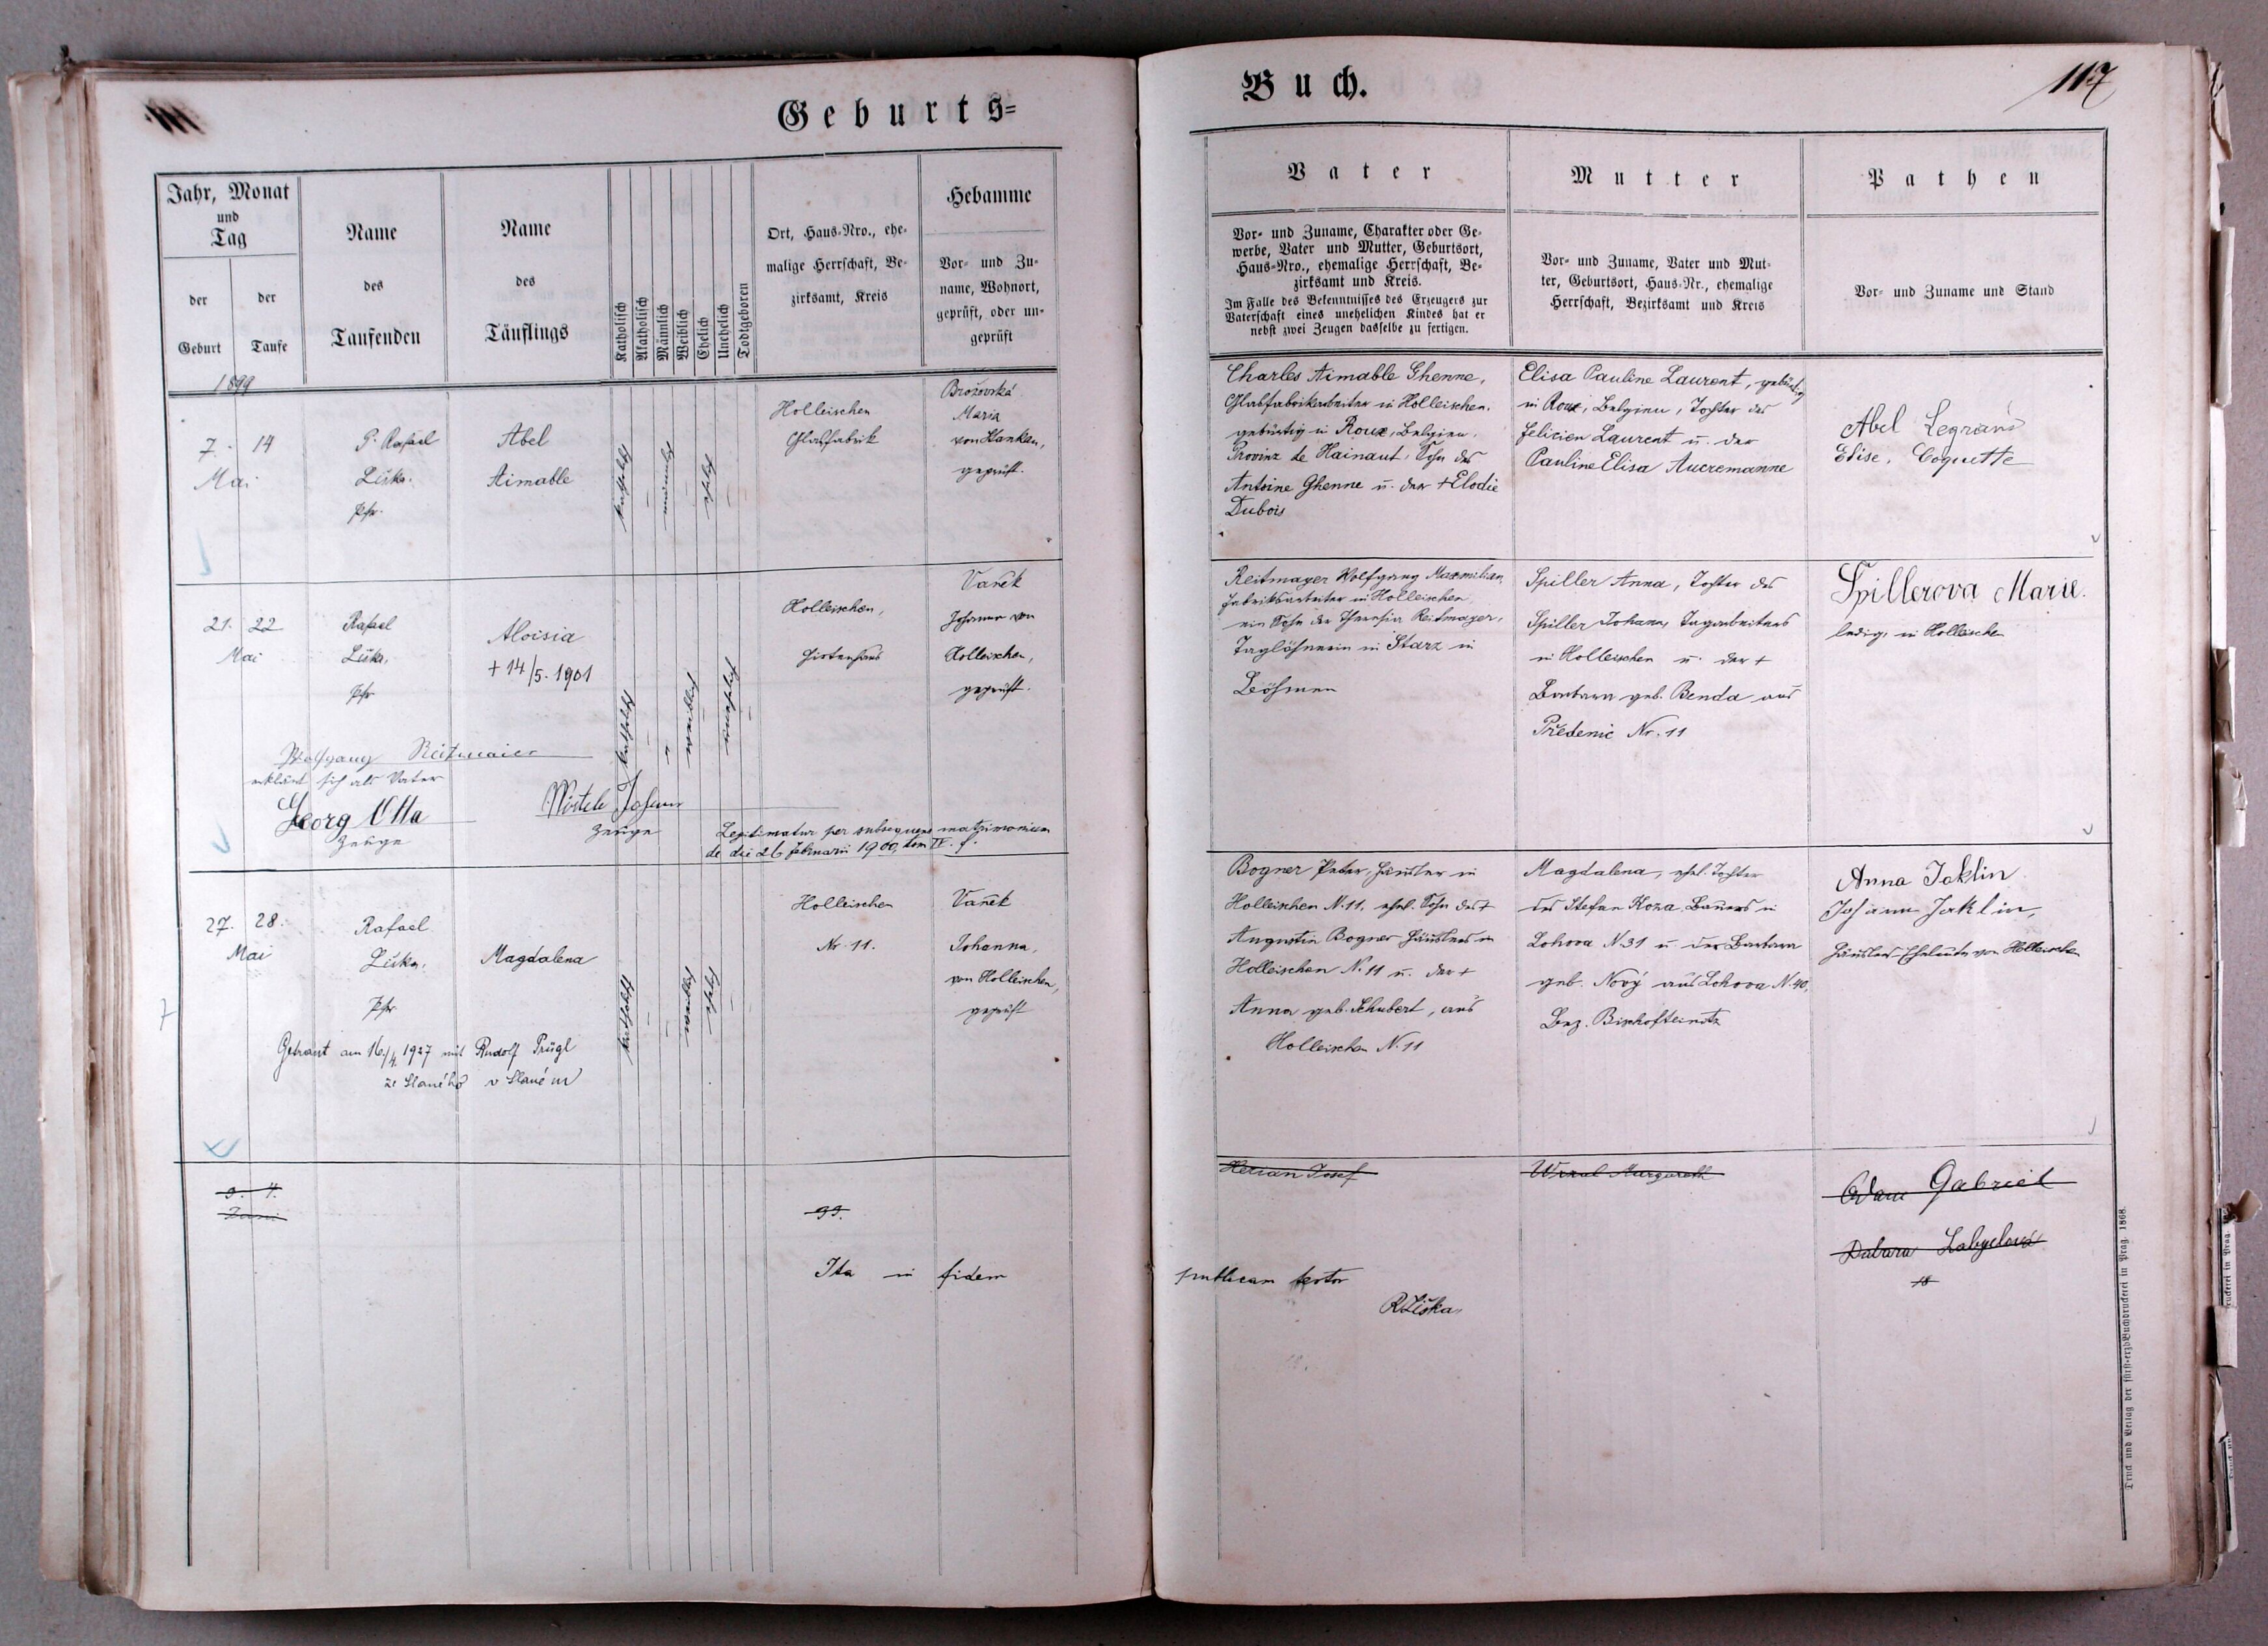 Geburts=
Buch.
117
Jahr, Monat
und
Tag
der
Geburt
der
Taufe
Name
des
Taufenden
Name
des
Täuflings
Katholisch
Akatholisch
Männlich
Weiblich
Ehelich
Unehelich
Todtgeboren
Ort, Haus-Nro., ehe-
malige Herrschaft, Be-
zirksamt, Kreis
Hebamme
Vor- und Zu-
name, Wohnort,
geprüft, oder un-
geprüft
Vater
Vor- und Zuname, Charakter oder Ge-
werbe, Vater und Mutter, Geburtsort,
Haus-Nro., ehemalige Herrschaft, Be-
zirksamt und Kreis.
Im Falle des Bekenntnisses des Erzeugers zur
Vaterschaft eines unehelichen Kindes hat er
nebst zwei Zeugen dasselbe zu fertigen.
Mutter
Vor- und Zuname, Vater und Mut-
ter, Geburtsort, Haus-Nr., ehemalige
Herrschaft, Bezirksamt und Kreis
Pathen
Vor- und Zuname und Stand
1899
7. 14
Mai
P. Rafael
Liška.
Pfr.
Abel
Aimable
katholisch
männlich
ehelich
Holleischen
Glasfabrik
Brožovská
Maria
von Stankau,
geprüft.
Charles Aimable Ghenne,
Glasfabrikarbeiter in Holleischen,
gebürtig in Roux, Belgien,
Provinz de Hainaut, Sohn des
Antoine Ghenne u. der + Elodie
Dubois
Elisa Pauline Laurent, gebürtig
in Roux, Belgien, Tochter des
Felicien Laurent u. der
Pauline Elisa Aucremanne
Abel Legrand
Elise. Coquette
21. 22
Mai
Rafael
Liška,
Pfr
Aloisia
+ 14/5. 1901
katholisch
weiblich
unehelich
Holleischen,
Hirtenhaus
Vaněk
Johanna von
Holleischen,
geprüft.
Reitmayer Wolfgang Maxmilian,
Fabriksarbeiter in Holleischen,
ein Sohn der Theresia Reitmayer,
Taglöhnerin in Starz in
Böhmen
Spiller Anna, Tochter des
Spiller Johann, Tagarbeiters
in Holleischen u. der +
Barbara geb. Benda aus
Předenic Nr. 11
Spillerova Marie.
ledig, in Holleischen
Wolfgang Reitmaier
erklärt sich als Vater
Georg Otta
Zeuge
Johann
Zeuge
Legitimatur per subsequens matrimonium
de die 26 februarii 1900, tom IV. f.
27. 28.
Mai
Rafael
Liška,
Pfr
Magdalena
katholisch
weiblich
ehelich
Holleischen
Nr. 11.
Vaněk
Johanna,
von Holleischen,
geprüft
Bogner Peter, Häusler in
Holleischen N. 11, ehel. Sohn des +
Augustin Bogner Häuslers in
Holleischen N. 11 u. der +
Anna geb. Schubert, aus
Holleischen N. 11
Magdalena, ehel. Tochter
des Stefan Koza, Bauers in
Lohova N. 31 u der Barbara
geb. Nový aus Lohova N. 40,
Bez. Bischofteinitz
Anna Jaklin
Johann Jaklin,
Häuslers-Eheleute von Holleischen
Getraut am 16/4 1927 mit Rudolf Prügl
ze Slaného v Slaném
3. 4.
Juni
99.
Josef
Margareth
Adam Gabriel
Ita in fidem
publicam testor
R Liška,
Druck und Verlag der fürst-erzb Buchdruckerei in Prag. 1868.